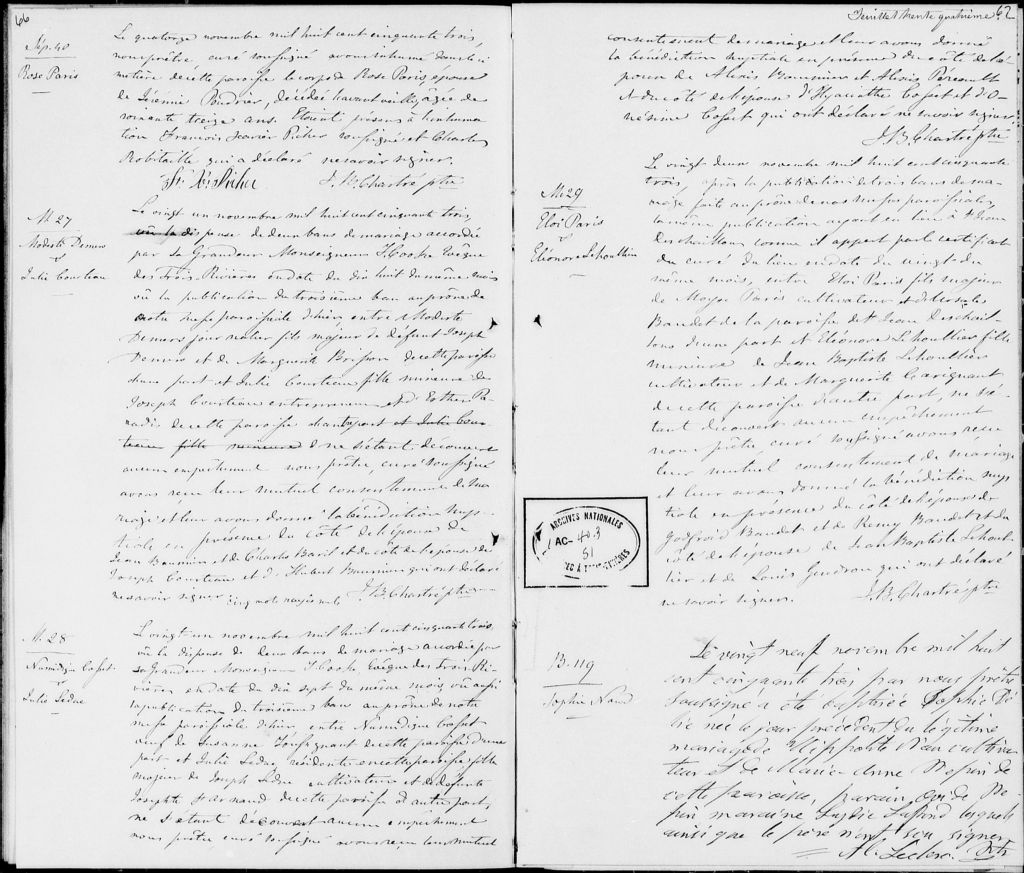 66
Sép. 40
Rose Paris
Le quatorze novembre mil huit cent cinquante trois,
nous prêtre, curé soussigné avons inhumé dans le ci
metière de cette paroisse le corps de Rose Paris épouse
de Jérémie Poudrier, décédée l'avant veille, âgée de
soixante treize ans. Etaient présens à l'inhuma
tion François Xavier Picher soussigné et Charles
Robitaille qui a déclaré ne savoir signer.
Frs Xer Picher J. B. Chartré ptre
M. 27
Modeste Demers
&
Julie Courteau
Le vingt un novembre mil huit cent cinquante trois,
vû la dispense de deux bans de mariage accordée
par sa Grandeur Monseigneur T. Cooke Evêque
des Trois Rivières en date du dix huit du même mois
vû la publication du troisième ban au prône de
notre messe paroissiale d'hier entre Modeste
Demers journalier fils majeur de défunt Joseph
Demers et de Marguerite Brisson de cette paroisse
d'une part et Julie Courteau fille mineure de
Joseph Courteau entrepreneur et d'Esther Pa-
radis de cette paroisse d'autre part et Julie Cour
teau fille mineure & ne s'étant découvert
aucun empêchement nous prêtre, curé soussigné
avons reçu leur mutuel consentement de ma
riage et leur avons donné la bénédiction nup-
tiale en présence du côté de l'époux de
Jean Beaumier et de Charles Baril et du côté de l'épouse de
Joseph Courteau et J. Hubert Beaumier qui ont déclaré
ne savoir signer cinq mots rayés nuls J. B. Chartré ptre
M. 28
Numidique Cosset
&
Julie Leduc
Le vingt un novembre mil huit cent cinquante trois
vû la dispense de deux bans de mariage accordée par
sa Grandeur Monseigneur T. Cooke Evêque des Trois Ri-
vières en date du dix sept du même mois, vû aussi
la publication du troisième bans au prône de notre
messe paroissiale d'hier entre Numidique Cosset
veuf de Susanne Toussignant de cette paroisse d'une
part et Julie Leduc, résidente en cette paroisse fille
majeure de Joseph Leduc cultivateur et de défunte
Josephte Harnaud de cette paroisse d'autre part,
ne s'étant découvert aucun empêchement
nous prêtre curé soussigné avons reçu leur mutuel
Feuillet trente quatrième 62
consentement de mariage et leur avons donné
la bénédiction nuptiale en présence du côté de l'é
poux de Alexis Beaumier et Alexis Perreault
et du côté de l'épouse d'Hyacinthe Cosset et d'O-
nésime Cosset qui ont déclaré ne savoir signer.
J. B. Chartré ptre
M. 29
Eloi Paris
&
Eléonore Lehoullier
Le vingt deux novembre mil huit cent cinquante
trois, après la publication de trois bans de ma-
riage faite au prône de nos messes paroissiales,
la même publication ayant eu lieu à St Jean
Deschaillons comme il appert par le certificat
du curé du lieu en date du vingt du
même mois, entre Eloi Paris fils majeur
de Moyse Paris cultivateur et de Ursule
Baudet de la paroisse de St Jean Deschail-
lons d'une part et Eléonore Lehoullier fille
mineure de Jean Baptiste Lehoullier
cultivateur et de Marguerite Carignant
de cette paroisse d'autre part, ne s'é-
tant découvert aucun empêchement
nous prêtre, curé soussigné avons reçu
leur mutuel consentement de mariage
et leur avons donné la bénédiction nup
tiale en présence du côté de l'époux de
Godfroid Baudet et de Remy Baudet et du
côté de l'épouse de Jean Baptiste Lehoul-
lier et de Louis Gendron qui ont déclaré
ne savoir signer. J. B. Chartré ptre
ARCHIVES NATIONALES
AC- 403
51
B. 119
Sophie Naud
Le vingt neuf novembre mil huit
cent cinquante trois, par nous prêtre
soussigné a été baptisée Sophie Dé
lie née le jour précédent du légitime
mariage de Hippolite Naud cultiva
teur et de Marie-Anne Pepin de
cette paroisse, parain, Ovide Pe-
pin maraine Lydie Lafond lesquels
ainsi que le père n'ont su signer
Al. Leclerc Ptre